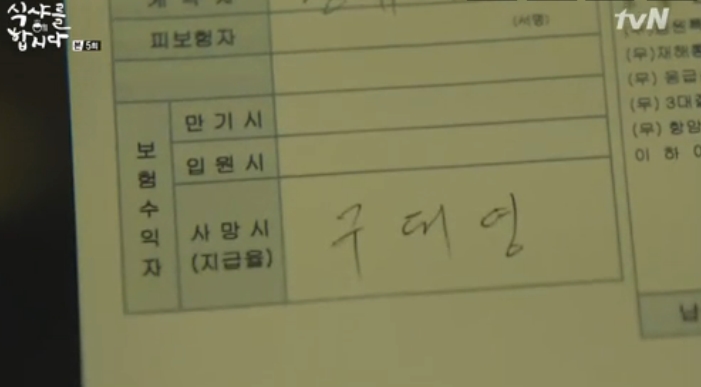 식샤를
합시다
본 5회
tvN
(서명)
피보험자
보험수익자
만기시
입원시
사망시
(지급율)
구대영
(무)재해
(무) 응급
(무) 3대
(무) 항암
이 하 여
납